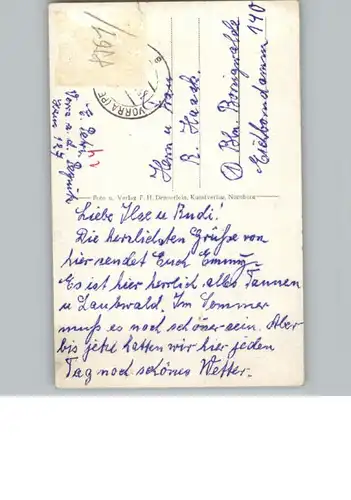 /1928
VORRA (PE
Herrn u. Frau
R. Haack
① Bln. Borsigwalde
140
E. Peter
Vorra a. d. Pegnitz
Haus 137
Foto u. Verlag F. H. Demerlein, Kunstverlag, Nürnberg
Liebe Ilse u Rudi.
Die herzlichsten Grüße von
hier sendet Euch Emmy.
Es ist hier herrlich alles Tannen
u Laubwald. Im Sommer
muß es noch schöner sein. Aber
bis jetzt hatten wir hier jeden
Tag noch schönes Wetter.